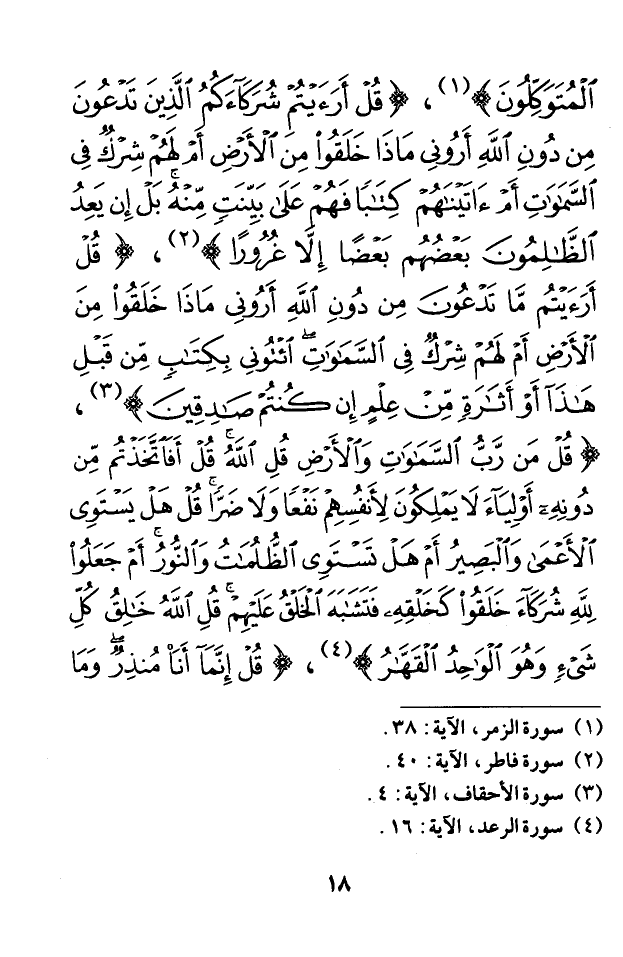 ٱلۡمُتَوَكِّلُونَ ﴾(١) ، ﴿ قُلۡ أَرَءَيۡتُمۡ شُرَكَآءَكُمُ ٱلَّذِينَ تَدۡعُونَ
مِن دُونِ ٱللَّهِ أَرُونِي مَاذَا خَلَقُواْ مِنَ ٱلۡأَرۡضِ أَمۡ لَهُمۡ شِرۡكٞ فِي
ٱلسَّمَٰوَٰتِ أَمۡ ءَاتَيۡنَٰهُمۡ كِتَٰبٗا فَهُمۡ عَلَىٰ بَيِّنَتٖ مِّنۡهُۚ بَلۡ إِن يَعِدُ
ٱلظَّٰلِمُونَ بَعۡضُهُم بَعۡضًا إِلَّا غُرُورًا ﴾(٢) ، ﴿ قُلۡ
أَرَءَيۡتُم مَّا تَدۡعُونَ مِن دُونِ ٱللَّهِ أَرُونِي مَاذَا خَلَقُواْ مِنَ
ٱلۡأَرۡضِ أَمۡ لَهُمۡ شِرۡكٞ فِي ٱلسَّمَٰوَٰتِۖ ٱئۡتُونِي بِكِتَٰبٖ مِّن قَبۡلِ
هَٰذَآ أَوۡ أَثَٰرَةٖ مِّنۡ عِلۡمٍ إِن كُنتُمۡ صَٰدِقِينَ ﴾(٣) ،
﴿ قُلۡ مَن رَّبُّ ٱلسَّمَٰوَٰتِ وَٱلۡأَرۡضِ قُلِ ٱللَّهُۚ قُلۡ أَفَٱتَّخَذۡتُم مِّن
دُونِهِۦٓ أَوۡلِيَآءَ لَا يَمۡلِكُونَ لِأَنفُسِهِمۡ نَفۡعٗا وَلَا ضَرّٗاۚ قُلۡ هَلۡ يَسۡتَوِي
ٱلۡأَعۡمَىٰ وَٱلۡبَصِيرُ أَمۡ هَلۡ تَسۡتَوِي ٱلظُّلُمَٰتُ وَٱلنُّورُۚ أَمۡ جَعَلُواْ
لِلَّهِ شُرَكَآءَ خَلَقُواْ كَخَلۡقِهِۦ فَتَشَٰبَهَ ٱلۡخَلۡقُ عَلَيۡهِمۡۚ قُلِ ٱللَّهُ خَٰلِقُ كُلِّ
شَيۡءٖ وَهُوَ ٱلۡوَٰحِدُ ٱلۡقَهَّٰرُ ﴾(٤) ، ﴿ قُلۡ إِنَّمَآ أَنَا۠ مُنذِرٞۖ وَمَا
(١) سورة الزمر، الآية: ٣٨.
(٢) سورة فاطر، الآية: ٤٠.
(٣) سورة الأحقاف، الآية: ٤.
(٤) سورة الرعد، الآية: ١٦.
١٨